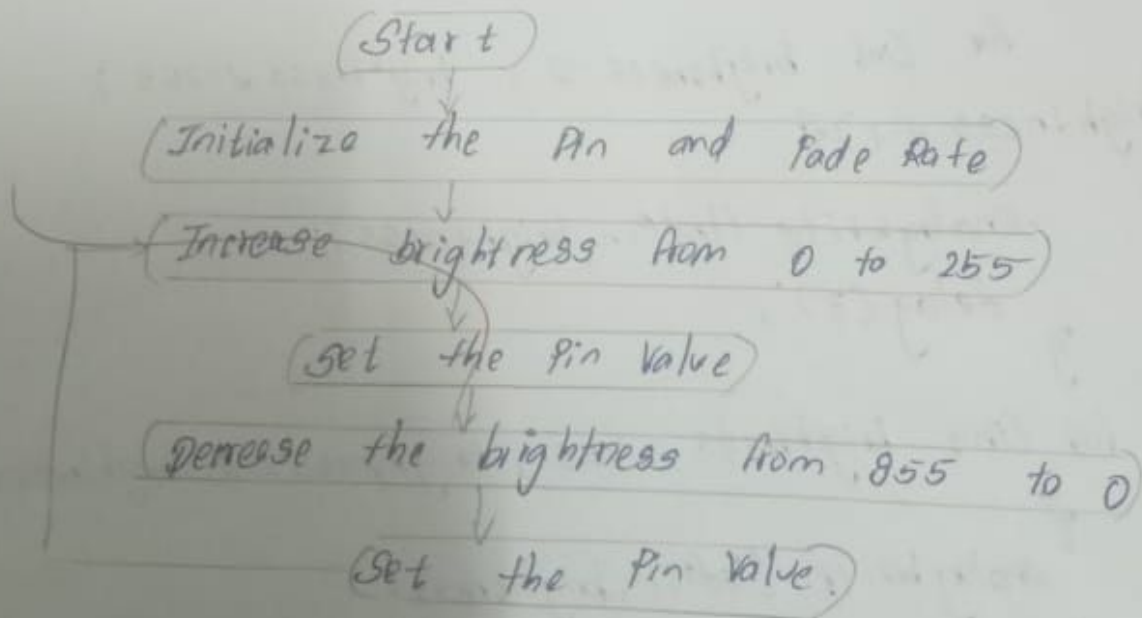 Start
Initialize the Pin and Fade Rate
Increase brightness from 0 to 255
Set the Pin Value
Decrease the brightness from 255 to 0
Set the Pin Value.